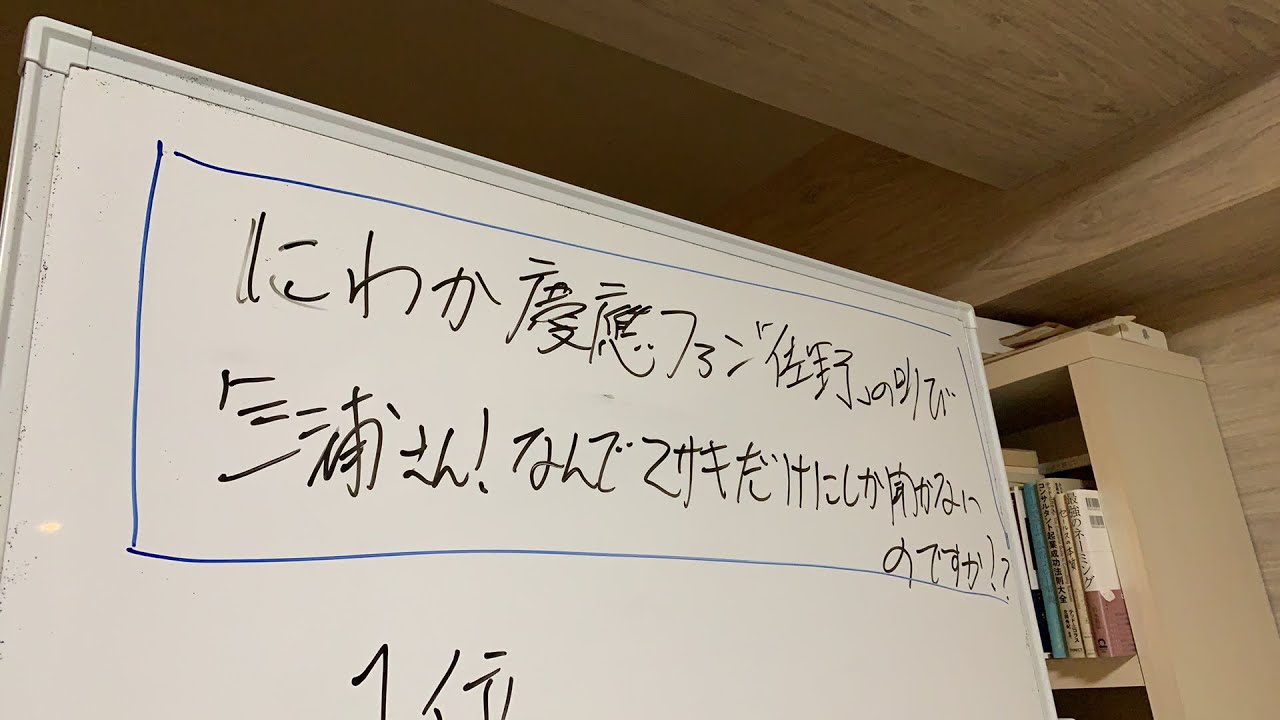 にわか慶應ファン「佐野」の叫び
「三浦さん！なんでマサキだけにしか聞かない
のですか！？
1位
最強のネーミング
コンサルタント起業成功法則大全